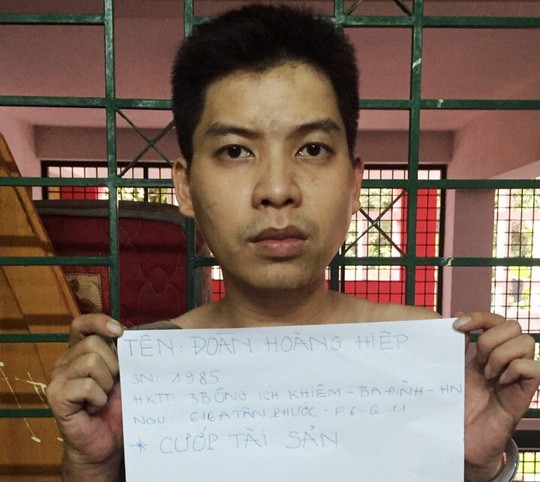 TÊN: ĐOÀN HOÀNG HIỆP
SN: 1985
HKTT: 3B ÔNG ÍCH KHIÊM - BA ĐÌNH - HN
NOW: 616A TÂN PHƯỚC - F6 - Q.11
* CƯỚP TÀI SẢN